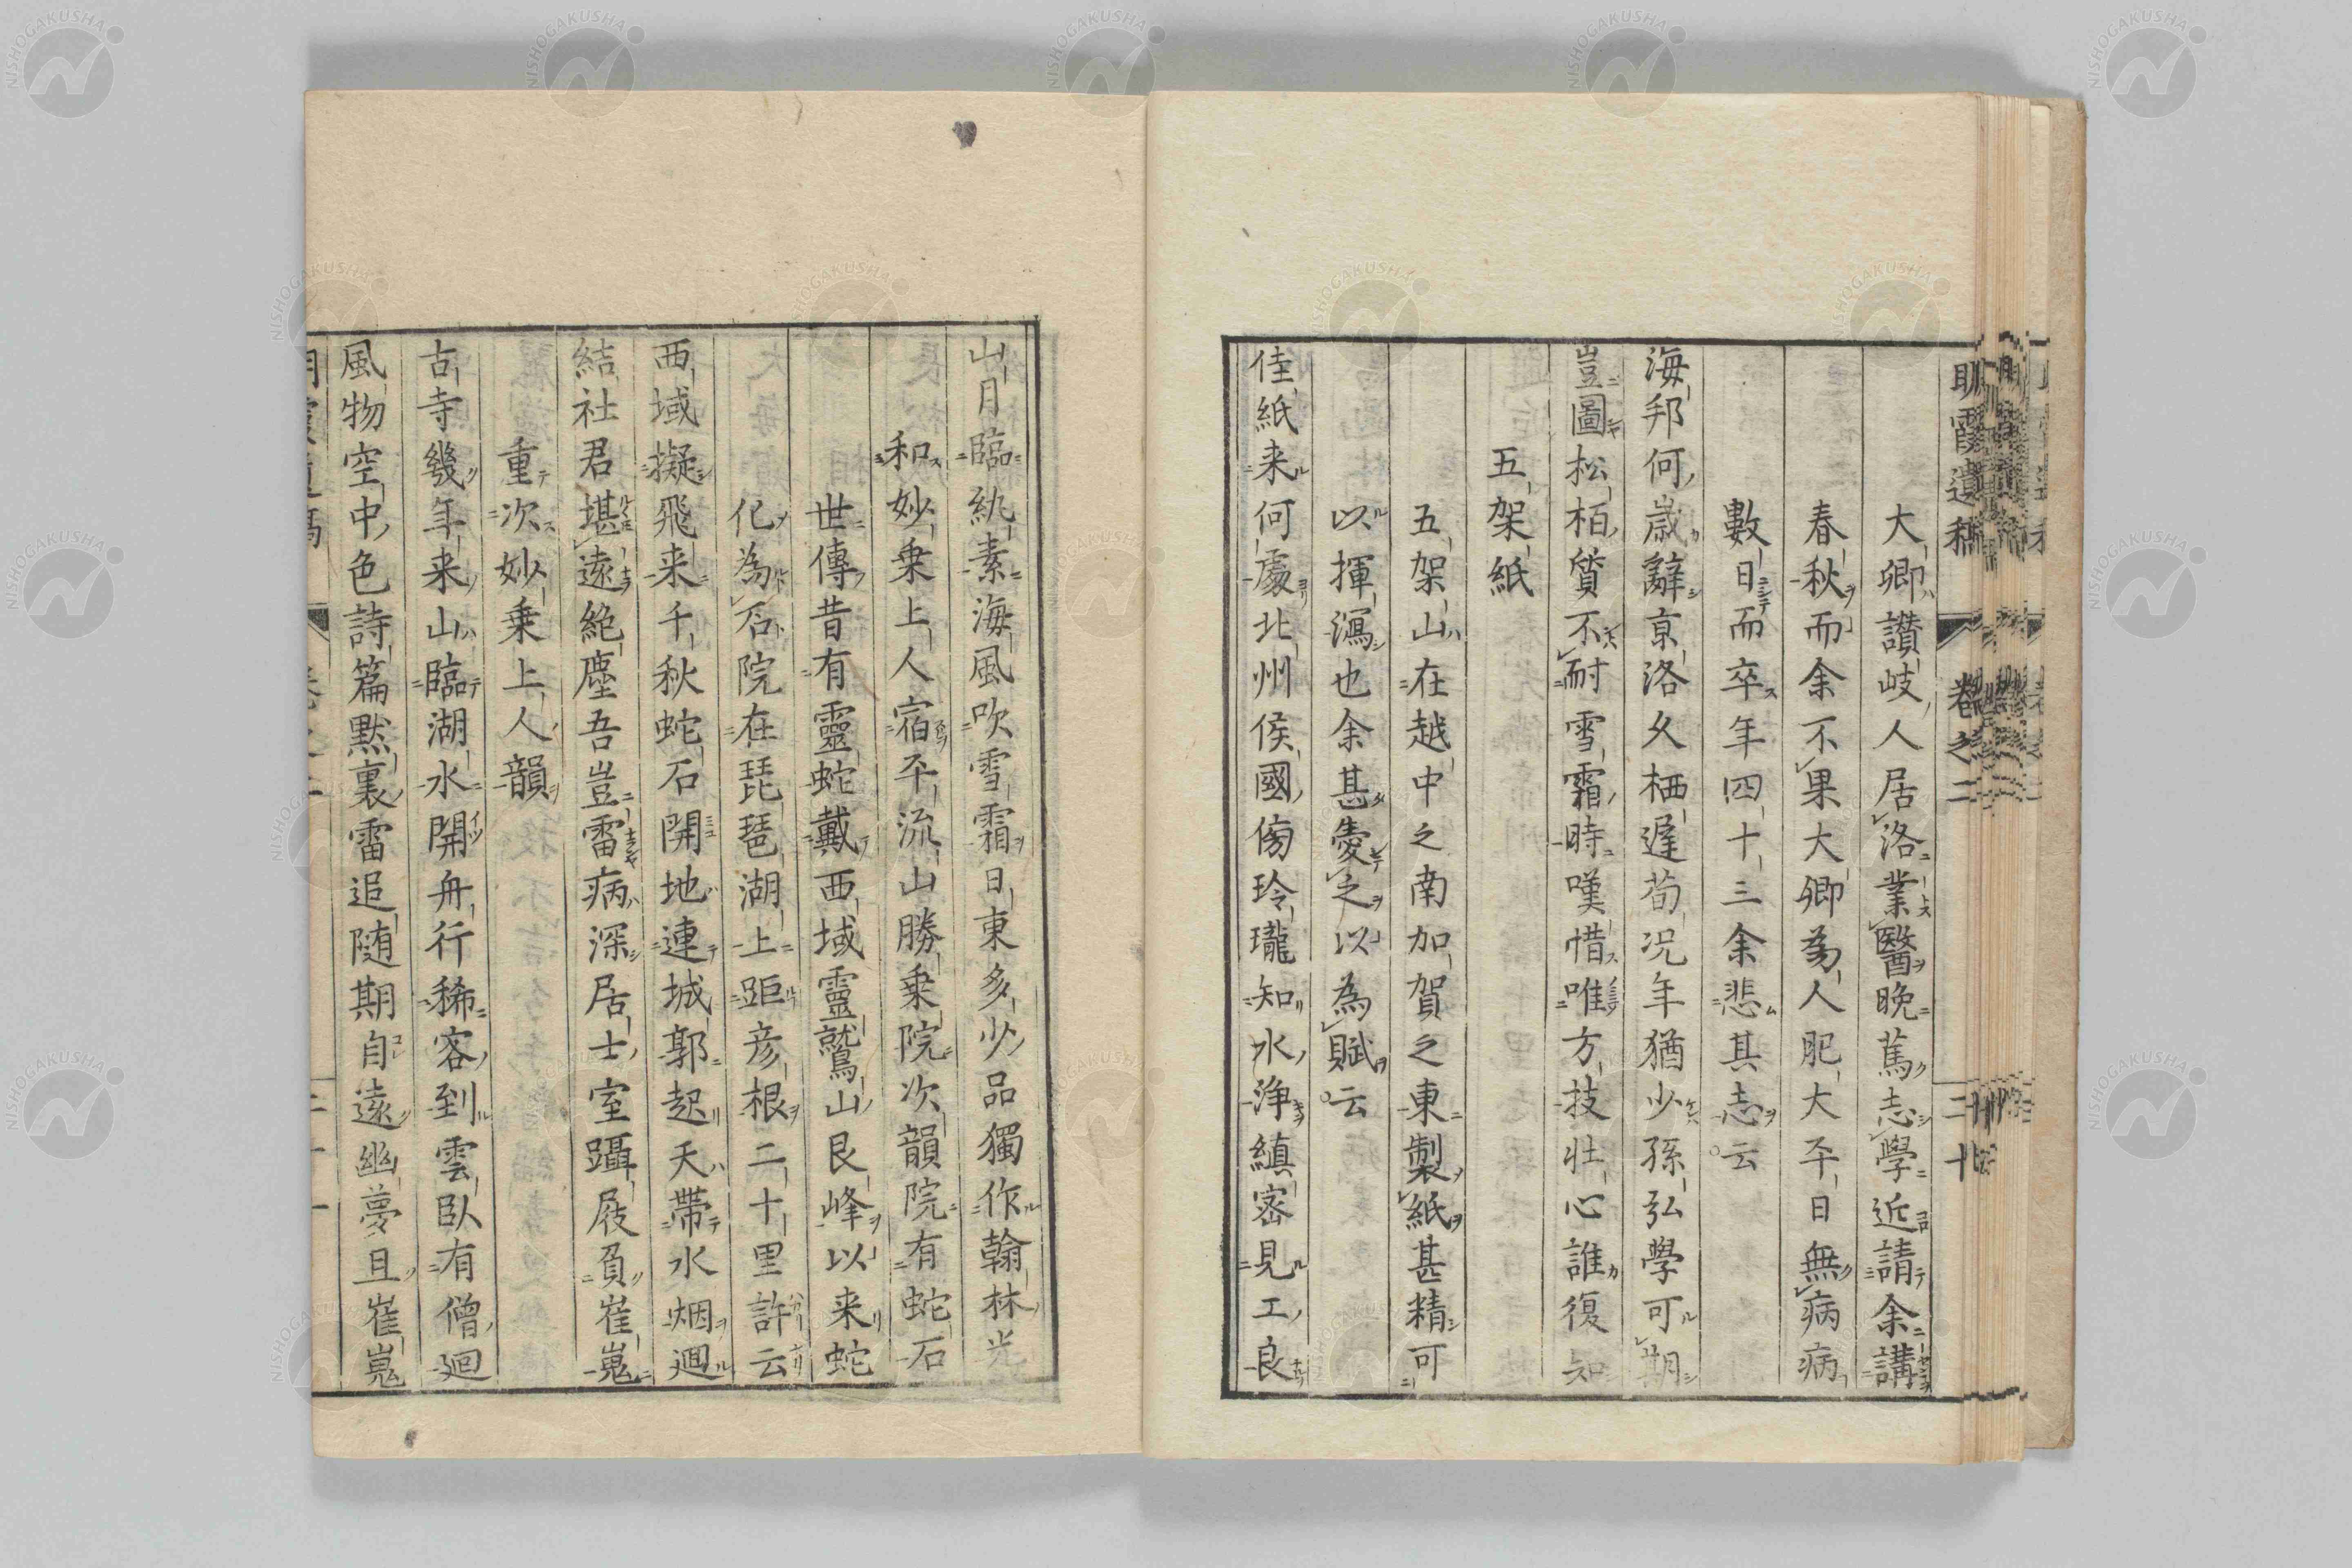 大卿讃岐人居洛業醫晩篤志學近請余講
春秋而余不果大卿為人肥大平日無病病
數日而卒年四十三余悲其志云
海邦何歳辭京洛久栖遲荀况年猶少孫弘學可期
豈圖松栢質不耐雪霜時嘆惜唯方技壯心誰復知
五架紙
五架山在越中之南加賀之東製紙甚精可
以揮瀉也余甚愛之以為賦云
佳紙来何處北州侯國傍玲瓏知水浄縝密見工良
山月臨紈素海風吹雪霜日東多少品獨作翰林光
和妙乗上人宿平流山勝乗院次韻院有蛇石
世傳昔有靈蛇戴西域靈鷲山艮峰以来蛇
化為石院在琵琶湖上距彦根二十里許云
西域擬飛来千秋蛇石開地連城郭起天帶水烟廻
結社君堪遠絶塵吾豈雷病深居士室躡屐負崔嵬
重次妙乗上人韻
古寺幾年来山臨湖水開舟行稀客到雲臥有僧廻
風物空中色詩篇默裏雷追随期自遠幽夢且崔嵬
耽霞遺稿 卷之二 二十
NISHOGAKUSHA